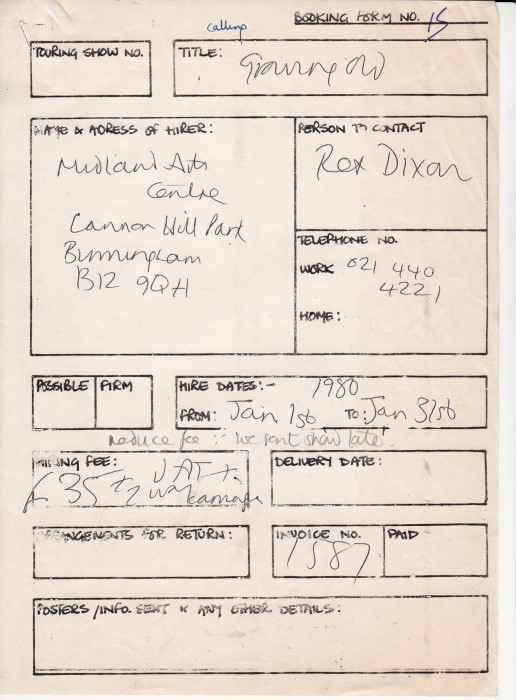 calling
BOOKING FORM NO. 15
TOURING SHOW NO.
TITLE:
Growing old
NAME & ADRESS of HIRER:
Midland Arts
Centre
Cannon Hill Park
Birmingham
B12 9QH
PERSON TO CONTACT
Rex Dixon
TELEPHONE NO.
WORK 021 440
4221
HOME:
POSSIBLE
FIRM
HIRE DATES:- 1980
FROM: Jan 1st TO: Jan 31st
reduce fee :- we sent show late.
HIRING FEE:
VAT +
£35 + 2 way carriage
DELIVERY DATE:
ARRANGEMENTS FOR RETURN:
INVOICE NO.
1587
PAID
POSTERS/INFO. SENT & ANY OTHER DETAILS: